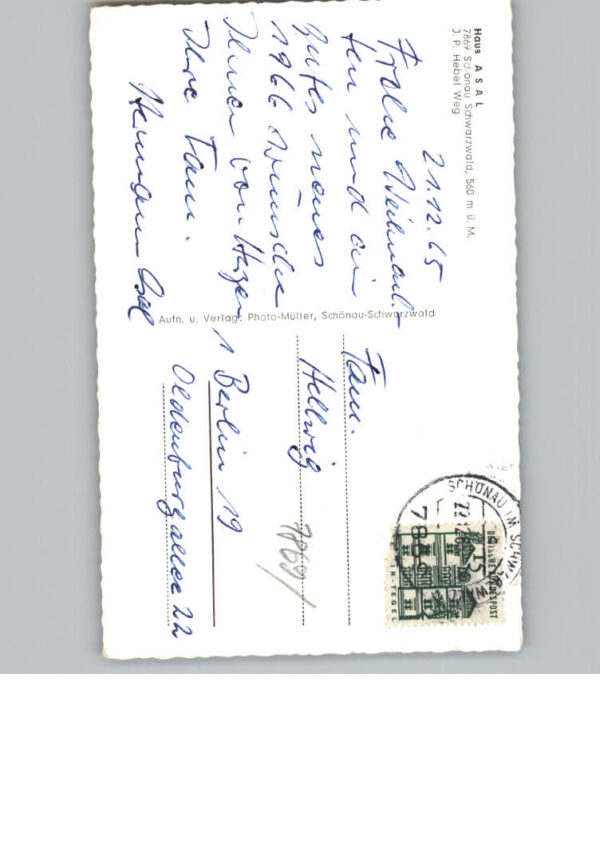 Haus ASAL
7869 Schönau Schwarzwald, 560 m ü. M.
J. P. Hebel Weg
21.12.65
Frohe Weihnach-
ten und ein
gutes neues
1966 wünschen
Ihnen von Herzen
Ihre Fam.
Hermann Asal
Aufn. u. Verlag: Photo-Müller, Schönau-Schwarzwald
Fam.
Hellwig
1 Berlin 19
Oldenburgallee 22
7869/
SCHÖNAU IM SCHWARZW
786
15
DEUTSCHE BUNDESPOST
TEGEL